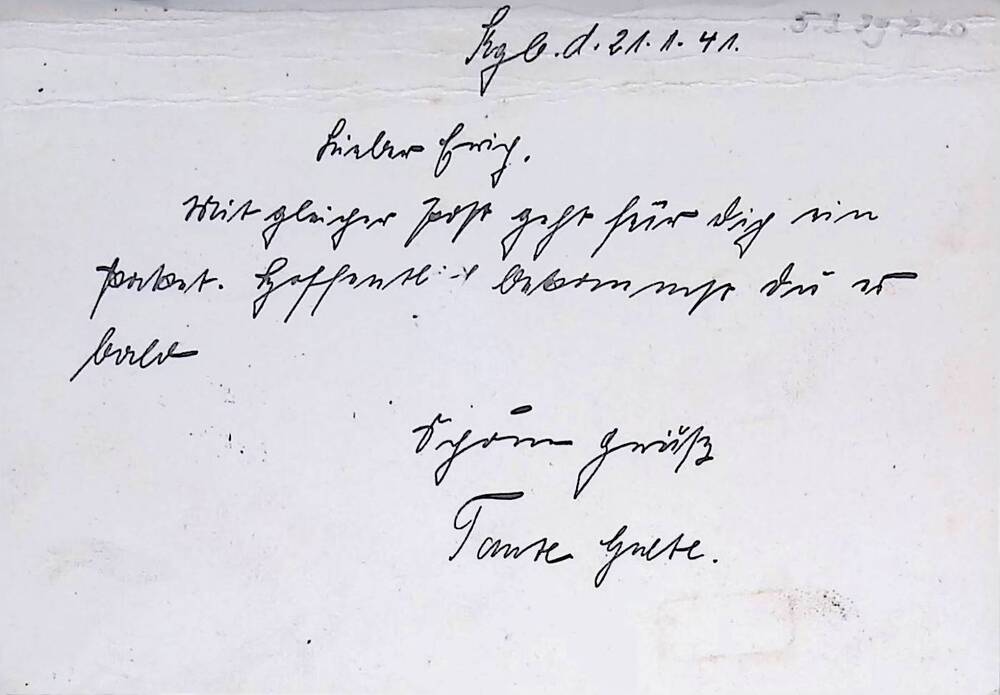 Kgb. d. 21.1.41.
Lieber Erich.
Mit gleicher Post geht für Dich ein
Paket. Hoffentl. bekommst Du es
bald
Schönen Gruß
Tante Grete.